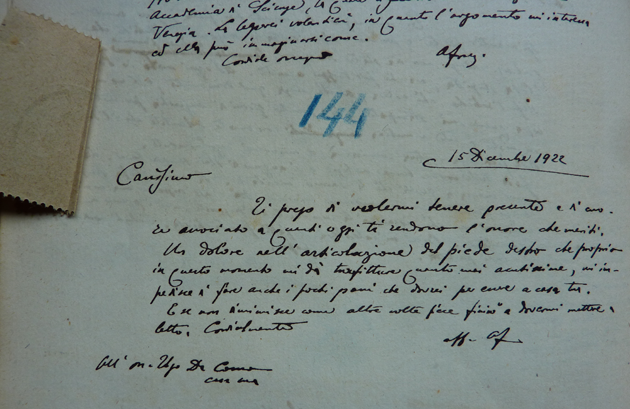 Accademia di Scienze, la
Venezia. La leggerei volentieri, in quanto l'argomento mi interessa
ed ella può immaginarsi come.
Cordiale
144
15 Dicembre 1922
Carissimo
Ti prego di volermi tenere presente e di
associato a quanti oggi ti rendono l'onore che meriti.
Un dolore nell'articolazione del piede destro che proprio
in questo momento mi dà trafitture quanto mai acutissime, m'im-
pedisce di fare anche i pochi passi che dovrei per venire a casa tua.
E se non diminuisce come altre volte fece finirò a dovermi mettere a
letto. Cordialmente
aff.
All' on. Ugo Da Como
casa sua